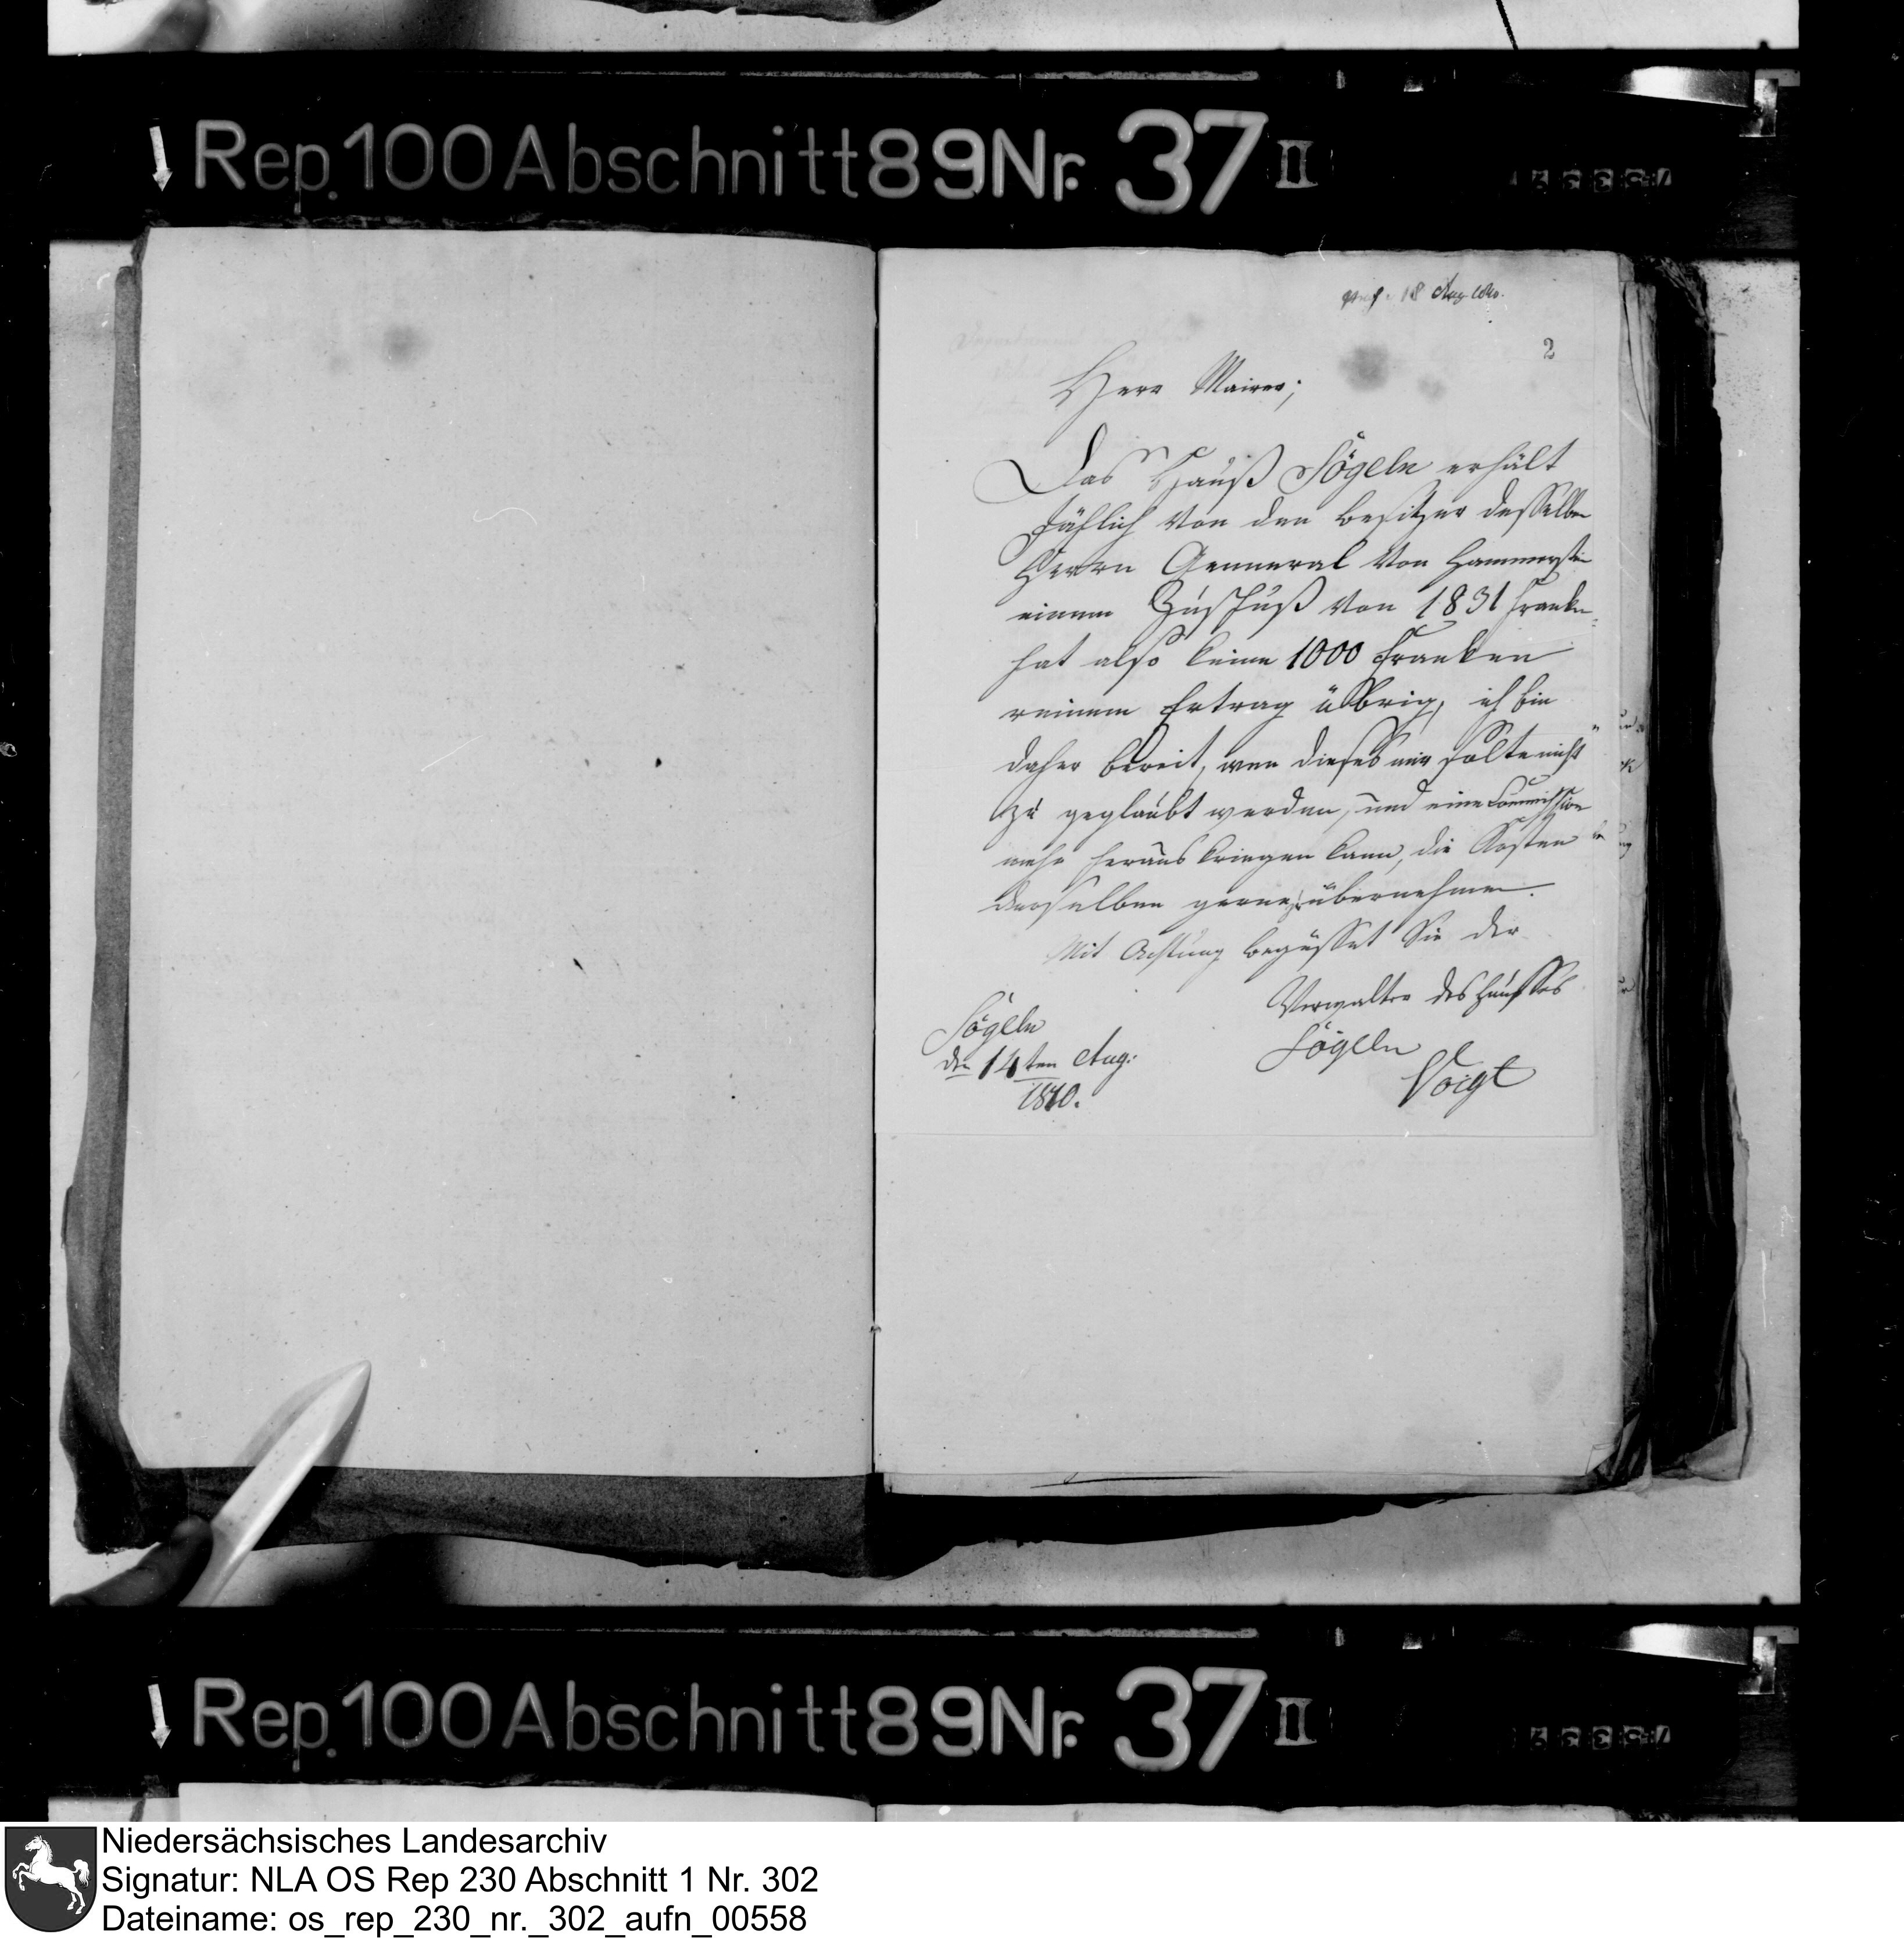 Rep. 100 Abschnitt 89 Nr. 37 II
18 Aug 1810.
2
Herr Maire;
Das Hauß Sögeln erhält
Jährlich von den besitzer desselben
Herrn Genneral von Hammerstein
einen Zuschuß von 1831 Franken
hat also keine 1000 Franken
reinem Ertrag übrig, ich bin
daher bereit, wen dieses mir solte nicht
zu geglaubt werden, und eine Commission
mehr heraus bringen kann, die Kosten
derselben gerne zu übernehmen.
Mit Achtung begrüsset Sie der
Verwalter des Hausses
Sögeln
Voigt
Sögeln
den 14ten Aug:
1810.
Rep. 100 Abschnitt 89 Nr. 37 II
Niedersächsisches Landesarchiv
Signatur: NLA OS Rep 230 Abschnitt 1 Nr. 302
Dateiname: os_rep_230_nr._302_aufn_00558